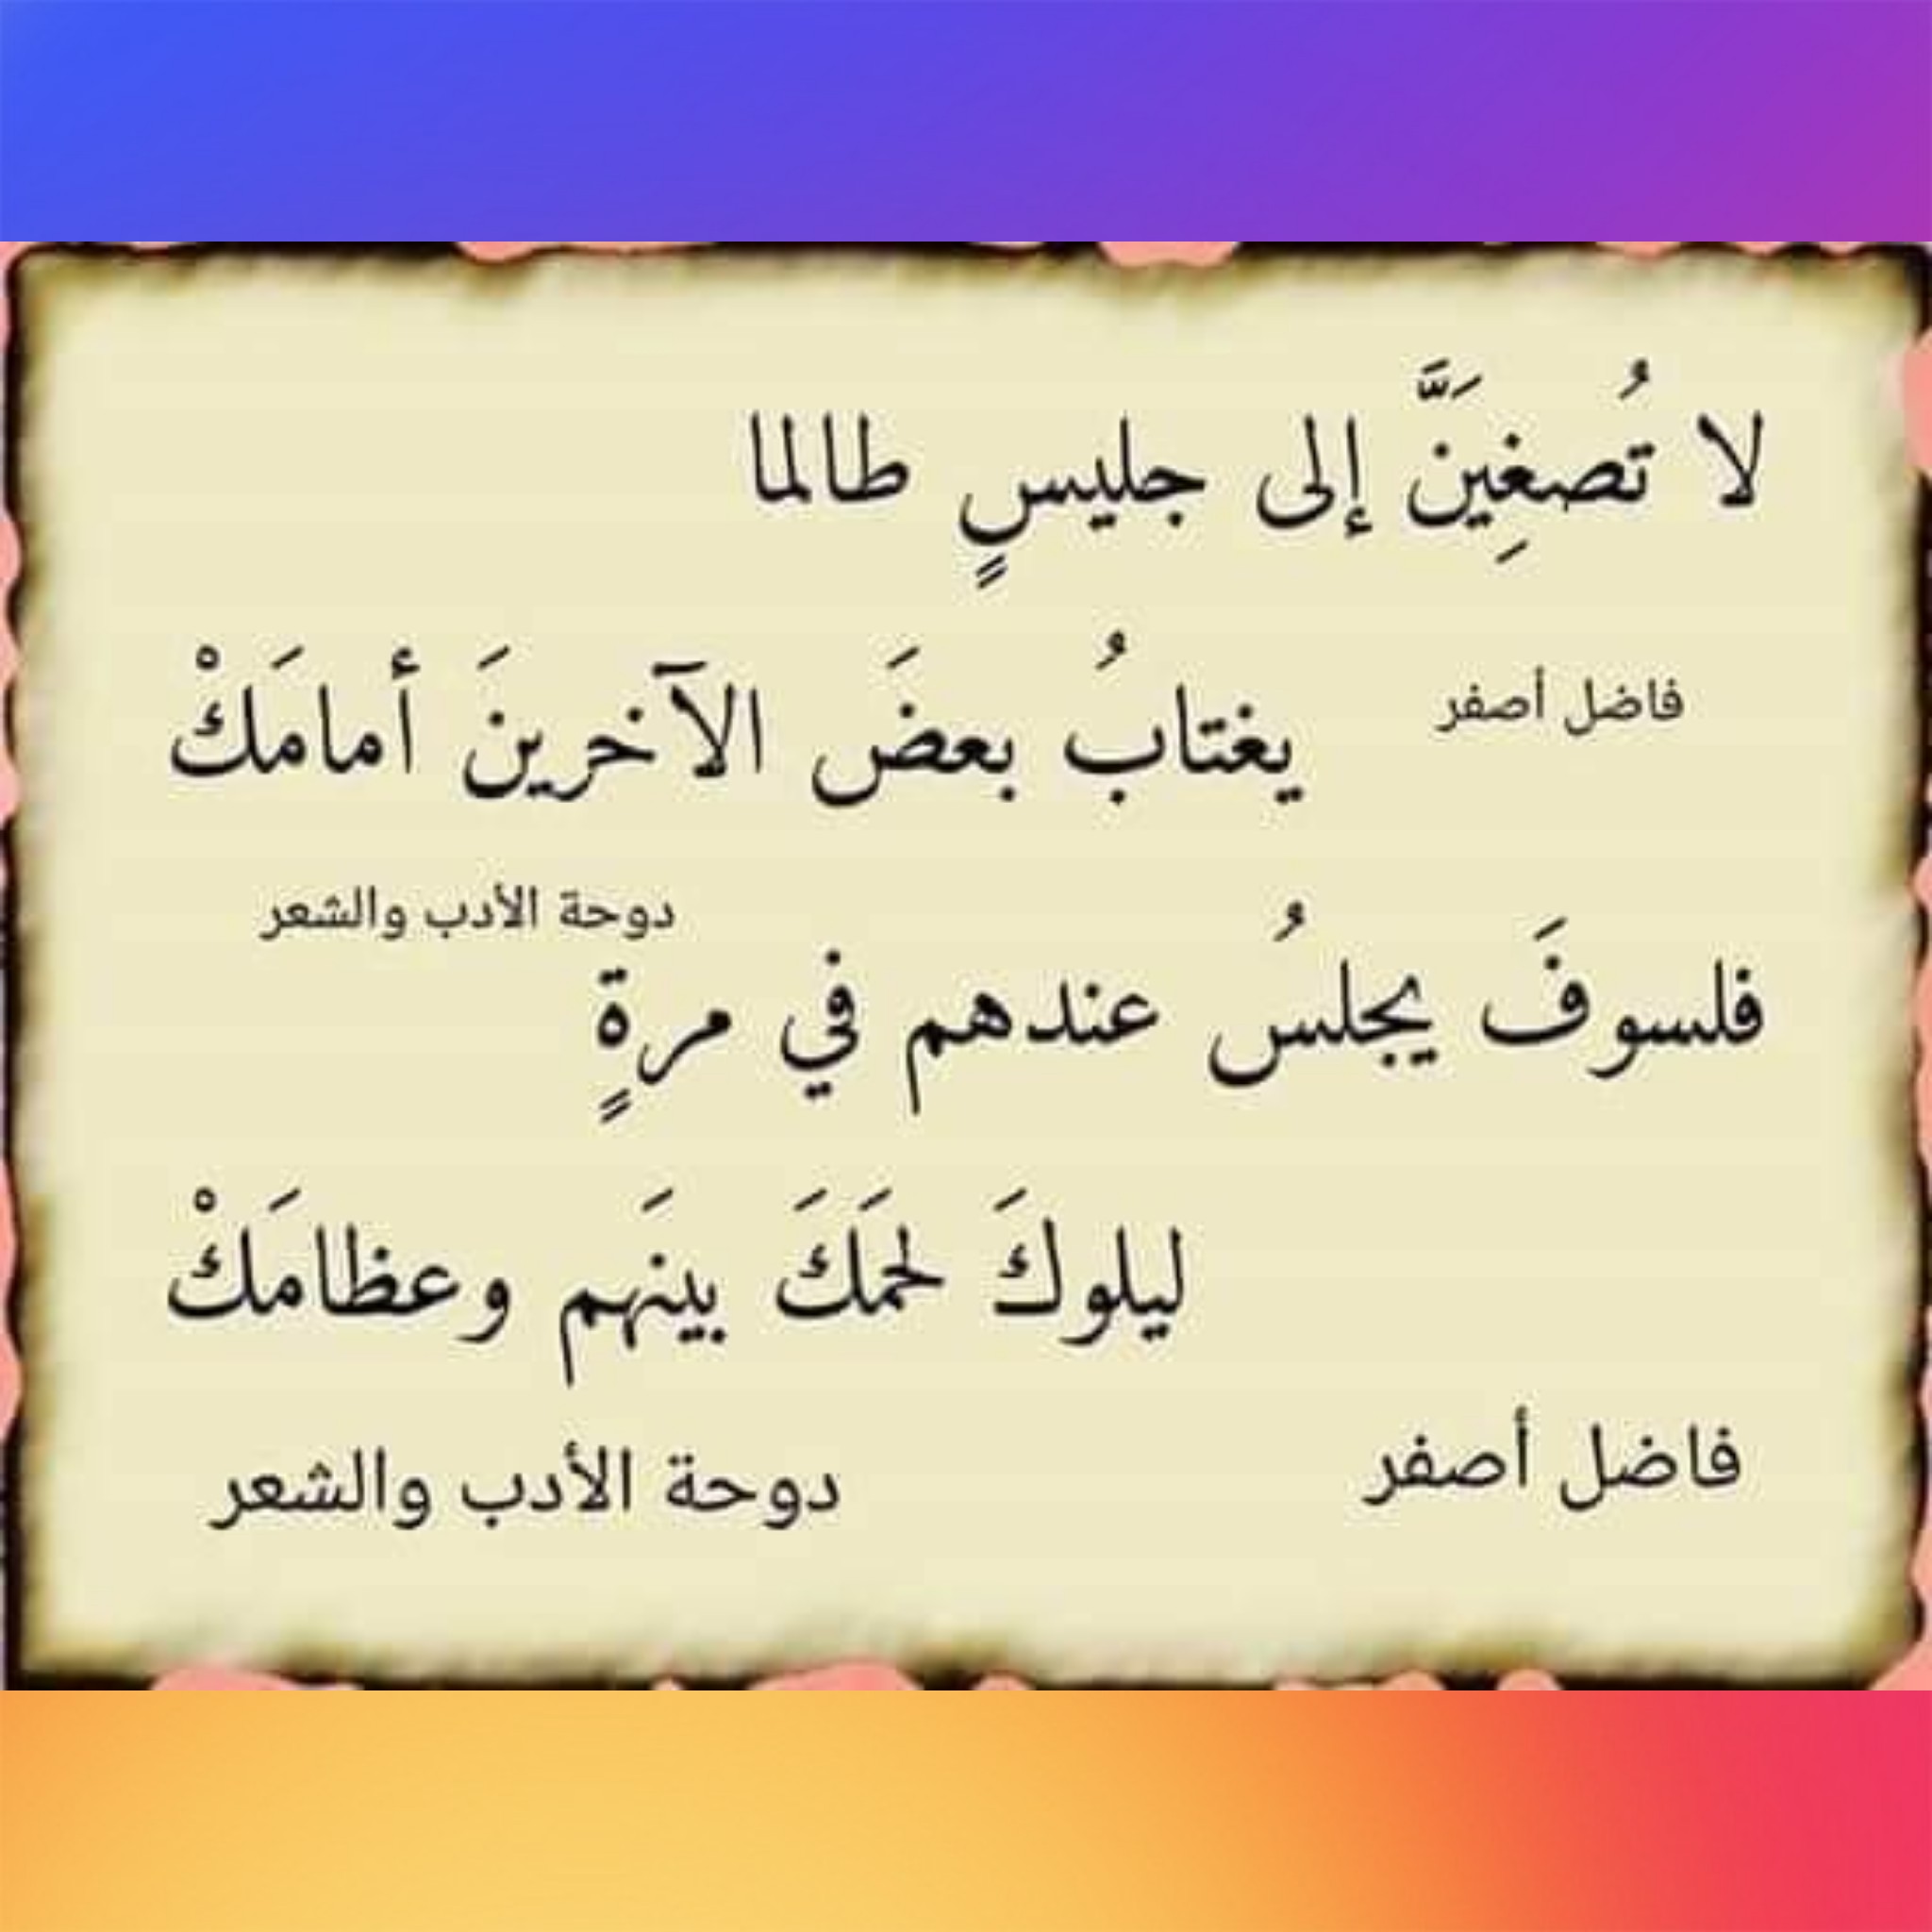 لا تُصغِيَنَّ إلى جليسٍ طالما
فاضل أصفر
يغتابُ بعضَ الآخرينَ أمامَكْ
دوحة الأدب والشعر
فلسوفَ يجلسُ عندهم في مرةٍ
ليلوكَ لحمَكَ بينَهم وعظامَكْ
فاضل أصفر
دوحة الأدب والشعر